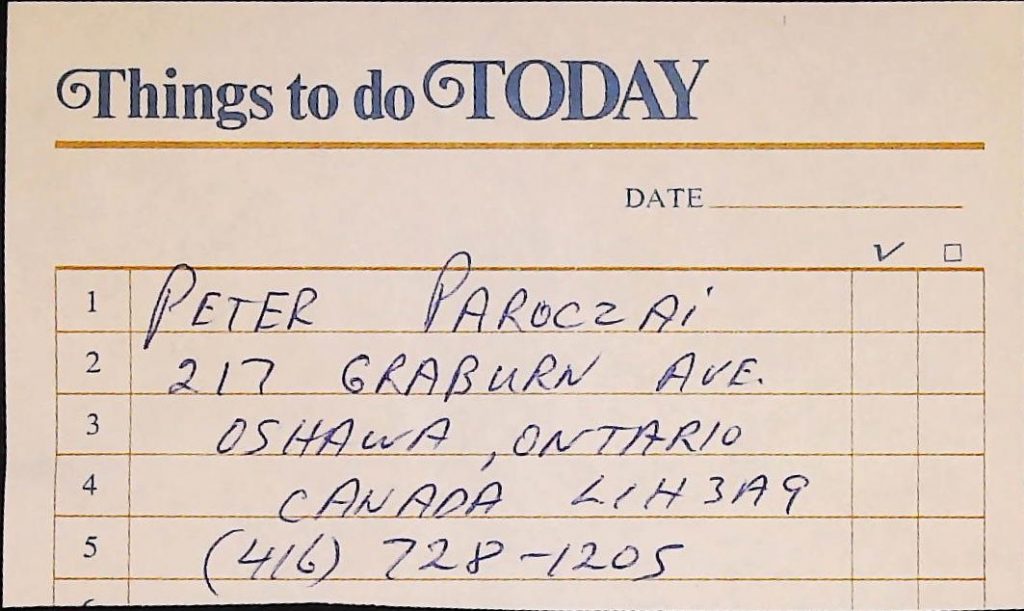 Things to do TODAY
DATE
✓ □
1 PETER PAROCZAi
2 217 GRABURN AVE.
3 OSHAWA, ONTARIO
4 CANADA L1H3A9
5 (416) 728-1205